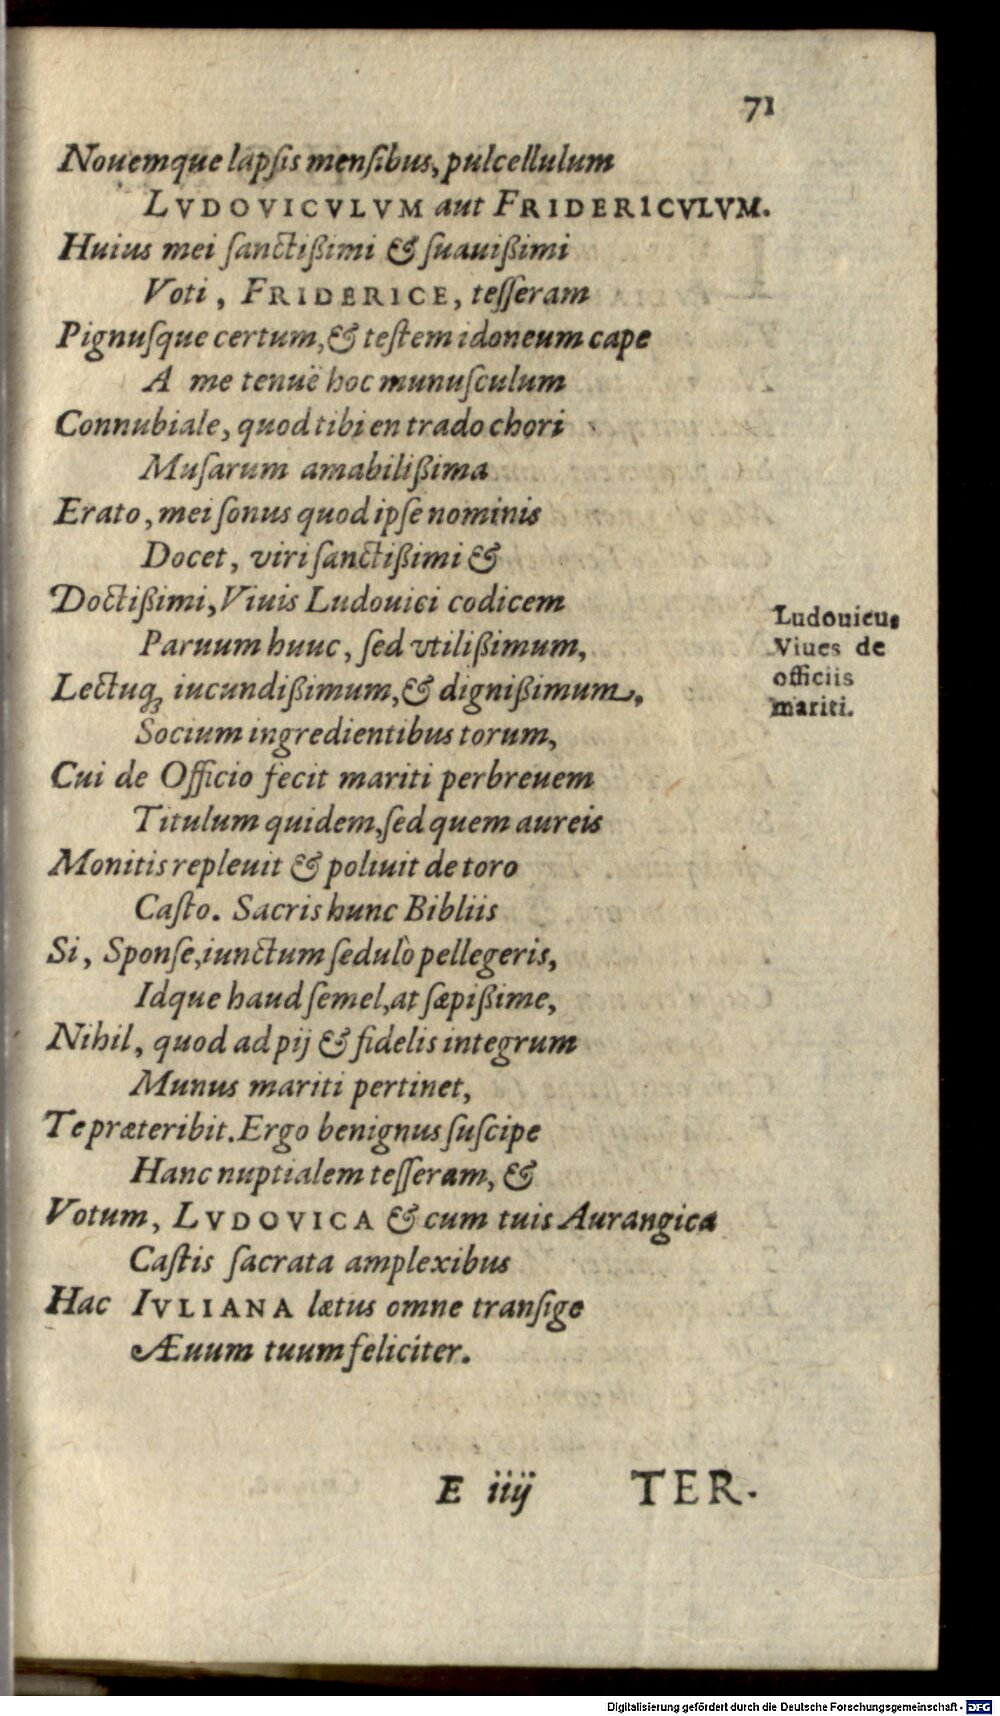 71
Nouemque lapſis menſibus, pulcellulum
LVDOVICVLVM aut FRIDERICVLVM.
Huius mei ſanctißimi & ſuauißimi
Voti, FRIDERICE, teſſeram
Pignuſque certum, & teſtem idoneum cape
A me tenuë hoc munuſculum
Connubiale, quod tibi en trado chori
Muſarum amabilißima
Erato, mei ſonus quod ipſe nominis
Docet, viri ſanctißimi &
Doctißimi, Viuis Ludouici codicem
Paruum huuc, ſed vtilißimum,
Lectuq́ꝫ iucundißimum, & dignißimum,
Socium ingredientibus torum,
Cui de Officio fecit mariti perbreuem
Titulum quidem, ſed quem aureis
Monitis repleuit & poliuit de toro
Caſto. Sacris hunc Bibliis
Si, Sponſe, iunctum ſedulò pellegeris,
Idque haud ſemel, at ſæpißime,
Nihil, quod ad pij & fidelis integrum
Munus mariti pertinet,
Te præteribit. Ergo benignus ſuſcipe
Hanc nuptialem teſſeram, &
Votum, LVDOVICA & cum tuis Aurangica
Caſtis ſacrata amplexibus
Hac IVLIANA lætus omne tranſige
Æuum tuum feliciter.
Ludouicus
Viues de
officiis
mariti.
E iiij TER-
Digitalisierung gefördert durch die Deutsche Forschungsgemeinschaft - DFG